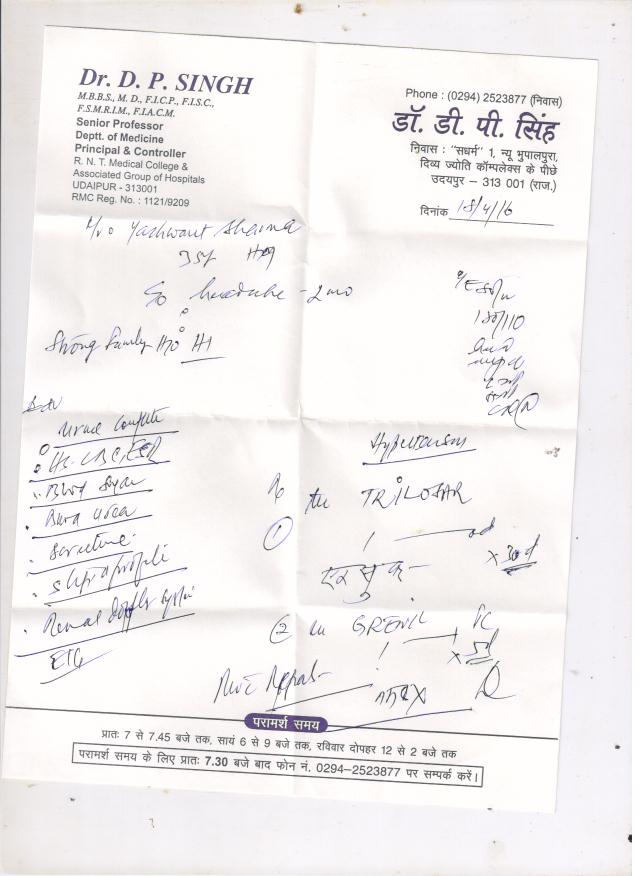 Dr. D. P. SINGH
M.B.B.S., M. D., F.I.C.P., F.I.S.C.,
F.S.M.R.I.M., F.I.A.C.M.
Senior Professor
Deptt. of Medicine
Principal & Controller
R. N. T. Medical College &
Associated Group of Hospitals
UDAIPUR - 313001
RMC Reg. No. : 1121/9209
Phone : (0294) 2523877 (निवास)
डॉ. डी. पी. सिंह
निवास : "सधर्म" 1, न्यू भुपालपुरा,
दिव्य ज्योति कॉम्पलेक्स के पीछे
उदयपुर – 313 001 (राज.)
दिनांक 18/4/16
Yashwant Sharma
35y
c/o headache - 2mo
Strong Family H/o HT
Urine Complete
Hb, CBC, ESR
Blood Sugar
Blood Urea
S creatinine
S lipid profile
Renal doppler
ECG
Hypertension
Rx
① TRILOSAR
1 od x 30d
② GRENIL
1 x 5d
परामर्श समय
प्रातः 7 से 7.45 बजे तक, सायं 6 से 9 बजे तक, रविवार दोपहर 12 से 2 बजे तक
परामर्श समय के लिए प्रातः 7.30 बजे बाद फोन नं. 0294–2523877 पर सम्पर्क करें।